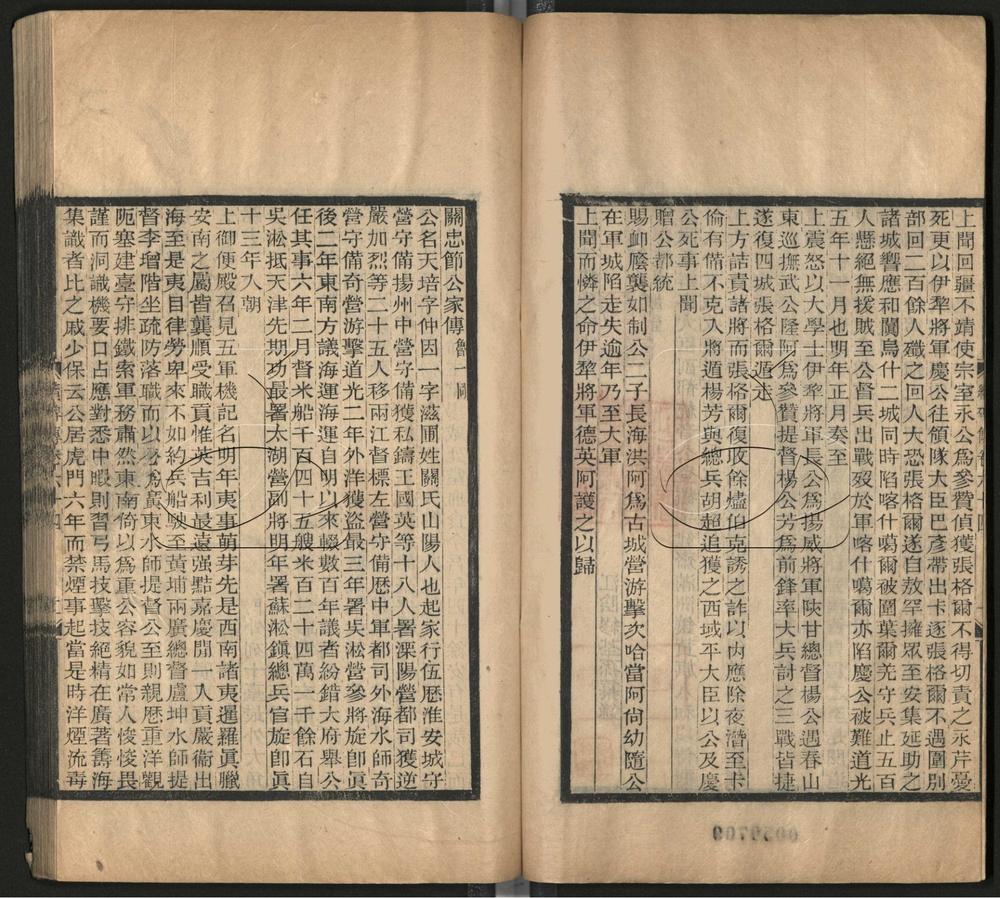 上聞回疆不靖使宗室永公為參贊偵獲張格爾不得切責之永芹憂
死更以伊犂將軍慶公往領隊大臣巴彥帶出卡逐張格爾不遇圍別
部回二百餘人殲之回人大恐張格爾遂自敖罕擁眾至安集延助之
諸城響應和闐烏什二城同時陷喀什噶爾被圍葉爾羌守兵止五百
人懸絕無援賊至公督兵出戰歿於軍喀什噶爾亦陷慶公被難道光
五年十一月也明年正月奏至
上震怒以大學士伊犂將軍長公為揚威將軍陝甘總督楊公遇春山
東巡撫武公隆阿為參贊提督楊公芳為前鋒率大兵討之三戰皆捷
遂復四城張格爾遁走
上方詰責諸將而張格爾復收餘燼伯克誘之詐以內應除夜潛至卡
倫有備不克入將遁楊芳與總兵胡超追獲之西域平大臣以公及慶
公死事上聞
贈公都統
賜卹廕襲如制公二子長海洪阿為古城營游擊次哈當阿尙幼隨公
在軍城陷走失逾年乃至大軍
上聞而憐之命伊犂將軍德英阿護之以歸
關忠節公家傳 魯一同
公名天培字仲因一字滋圃姓關氏山陽人也起家行伍歷淮安城守
營守備揚州中營守備獲私鑄王國英等十八人署溧陽營都司獲逆
嚴加烈等二十五人移兩江督標左營守備歷中軍都司外海水師奇
營守備奇營游擊道光二年外洋獲盜最三年署吳淞營參將旋卽眞
後二年東南方議海運海運自明以來輟數百年議者紛錯大府舉公
任其事六年二月督米船千百四十五艘米百二十四萬一千餘石自
吳淞抵天津先期功最署太湖營副將明年署蘇淞鎮總兵官旋卽眞
十三年入朝
上御便殿召見五軍機記名明年夷事萌芽先是西南諸夷暹羅眞臘
安南之屬皆襲順受職貢惟英吉利最遠强黠嘉慶間一入貢嚴衞出
海至是夷目律勞卑來不如約兵船駛至黃埔兩廣總督盧坤水師提
督李增階坐疏防落職而以公為廣東水師提督公至則親歷重洋觀
阨塞建臺守排鐵索軍務肅然東南倚以為重公容貌如常人悛悛畏
謹而洞識機要口占應對悉中暇則習弓馬技擊技絕精在廣著籌海
集識者比之戚少保云公居虎門六年而禁煙事起當是時洋煙流毒
0059709